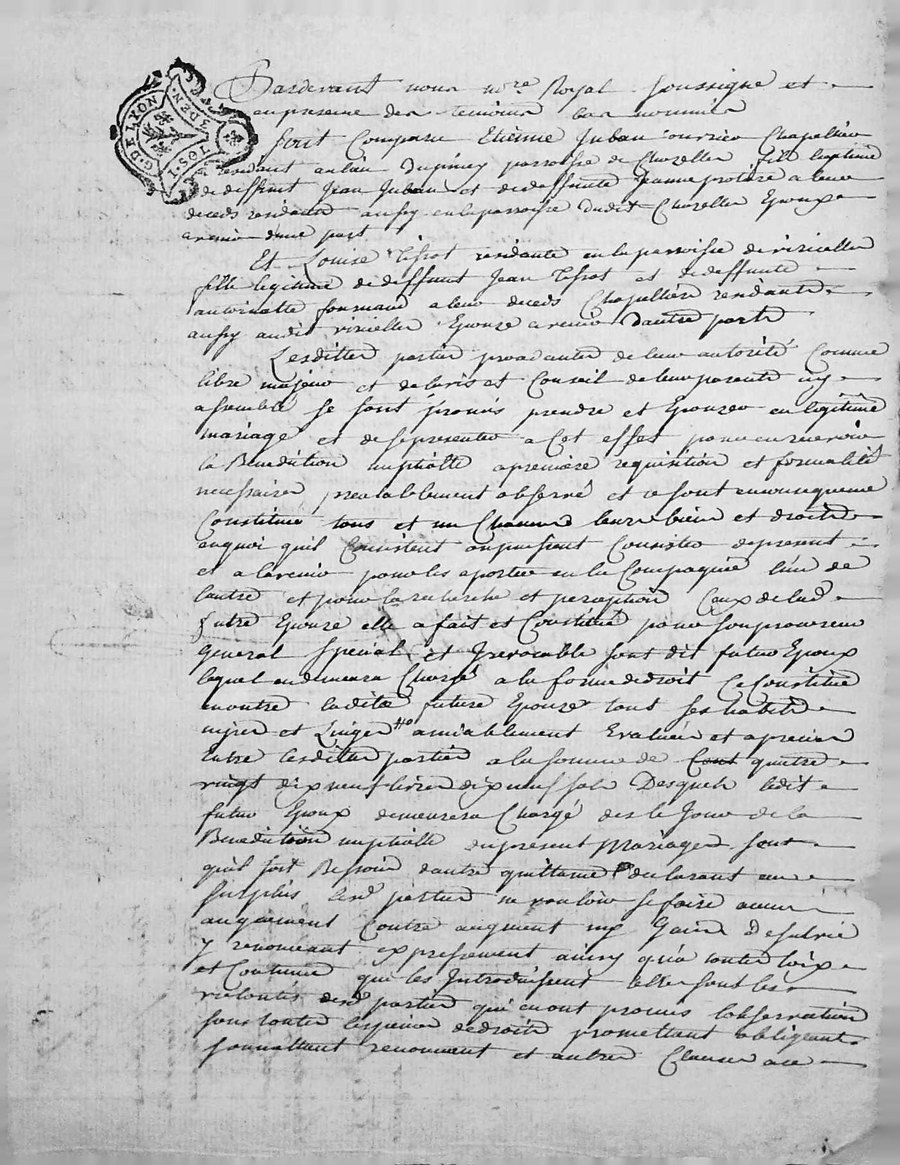 G. DE LYON
3 DEN.
TOS. 1
Pardevant nous no.re Royal soussigne et
en presence des temoins bas nommés
furt Comparu Etienne Juban ouvrier Chapellier
residant au lieu Dupiney parroisse de Chazelles fils legitime
de deffunt Jean Juban et de deffunte Jeanne a leurs
deceds residants aussy en la parroisse dudit Chazelles Epoux
avenir dune part
Et Louise Tissot residante en la parroisse de viricelles
fille legitime de deffunt Jean Tissot et de deffunte
antoinette a leur deceds Chapelliere residante
aussy audit viricelles Epouze avenir dautre parts
Lesdittes parties procedantes de leur autorité Comme
libre majeur et de lavis et Conseil de leurs parents icy
assemblé se sont promis prendre et Epouzer en legitime
mariage et de se presenter a Cet effet pour en recevoir
la Benediction nuptialle a premiere requisition et formalité
necessaires prealablement observé et se sont en consequence
Constitué tous et un Chacuns leurs biens et droits
enquoi quil Consistent ou puissent Consister de present
et a lavenir pour les aporter en la Compagnie lun de
lautre et pour la recherche et perception Caux de lad
future Epouze elle a fait et Constitué pour son procureur
general special et Irrevocable sont dit futur Epoux
lequel en demeura Chargé a la forme de droit Ce Constitue
en outre laditte future Epouze tous ses habits
nipes et Linges amiablement Evalués et apreciés
Entre lesdittes parties a la somme de Cent quatre
vingt dix neuf livres dix neuf sols Desquels ledit
futur Epoux demeurera Chargé des le Jour de la
Benediction nuptialle du present Mariage sans
quil soit Besoin dautre quittance declarant au
surplus lesd parties ne vouloir se faire aucun
augment Contre augment ny Gain De survie
y renonceant expressement ainsy qua toutes loix
et Coutumes qui les Introduisent telles sont les
volontés desd parties qui en ont promis lobservation
sous toutes les peines de droits promettant obligeant
soumettant renonceant et autres Clauses ace